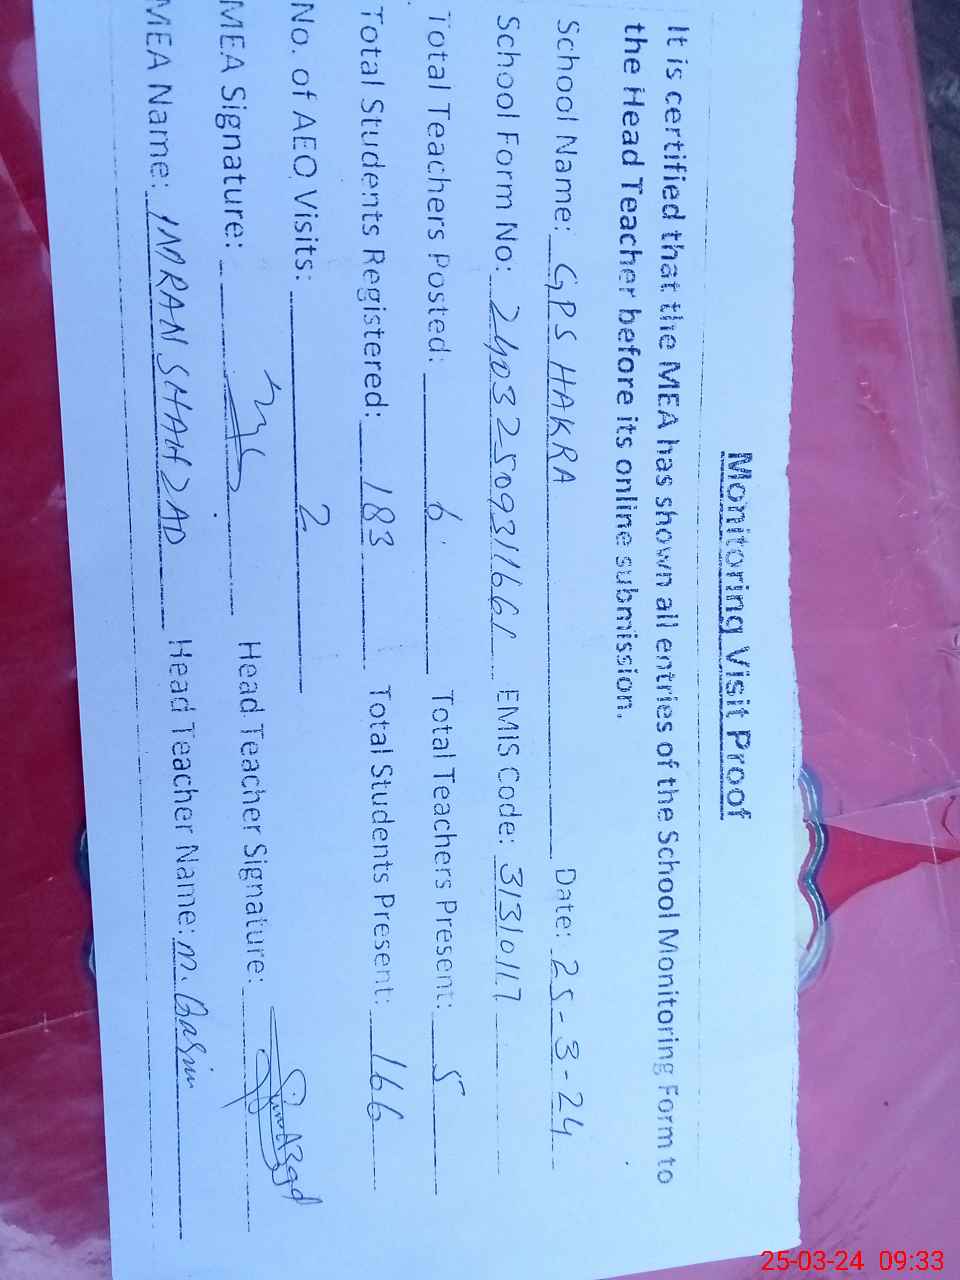 Monitoring Visit Proof
It is certified that the MEA has shown all entries of the School Monitoring Form to
the Head Teacher before its online submission.
School Name: GPS HAKRA Date: 25-3-24
School Form No: 24032509311661 EMIS Code: 31310117
Total Teachers Posted: 6 Total Teachers Present: 5
Total Students Registered: 183 Total Students Present: 166
No. of AEO Visits: 2
MEA Signature: Head Teacher Signature:
MEA Name: IMRAN SHAHZAD Head Teacher Name: M.
25-03-24 09:33